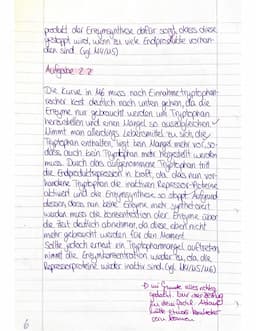 produkt der Enzymsynthese dafür sorgt, dass diese
gestoppt wird, wenn zu viele Endprodukte vorhan-
den sind. (vgl. M4/M5)
Aufgabe 2.2
Die Kurve in M6 muss nach Einnahme tryptophan-
reicher Kost deutlich nach unten gehen, da die
Enzyme nur gebraucht werden um Tryptophan
herzustellen und einen Mangel so auszugleichen.
Nimmt man allerdings Lebensmittel zu sich, die
Tryptophan enthalten, liegt kein Mangel mehr vor, so-
dass auch kein Tryptophan mehr hergestellt werden
muss. Durch das aufgenommene Tryptophan tritt
die Endproduktrepression in Kraft, da das nun vor-
handene Tryptophan die inaktiven Repressor-Proteine
aktiviert und die Enzymsynthese so stoppt. Aufgrund
dessen, dass nun keine Enzyme mehr synthetisiert
werden muss die Konzentration der Enzyme über
die Zeit deutlich abnehmen, da diese eben nicht
mehr gebraucht werden für den Moment.
Sollte jedoch erneut ein Tryptophanmangel auftreten,
nimmt die Enzymkonzentration wieder zu, da die
Repressorproteine wieder inaktiv sind. (vgl. M4/M5/M6)
im Grunde alles richtig
gedacht. Nur der
6